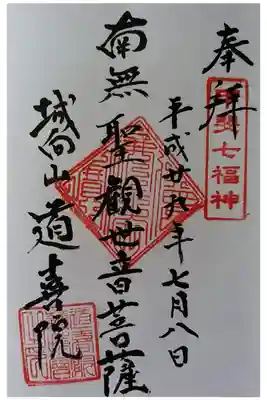 奉拝
七福神
平成廿九年七月八日
南無聖觀世音菩薩
城向山道喜院